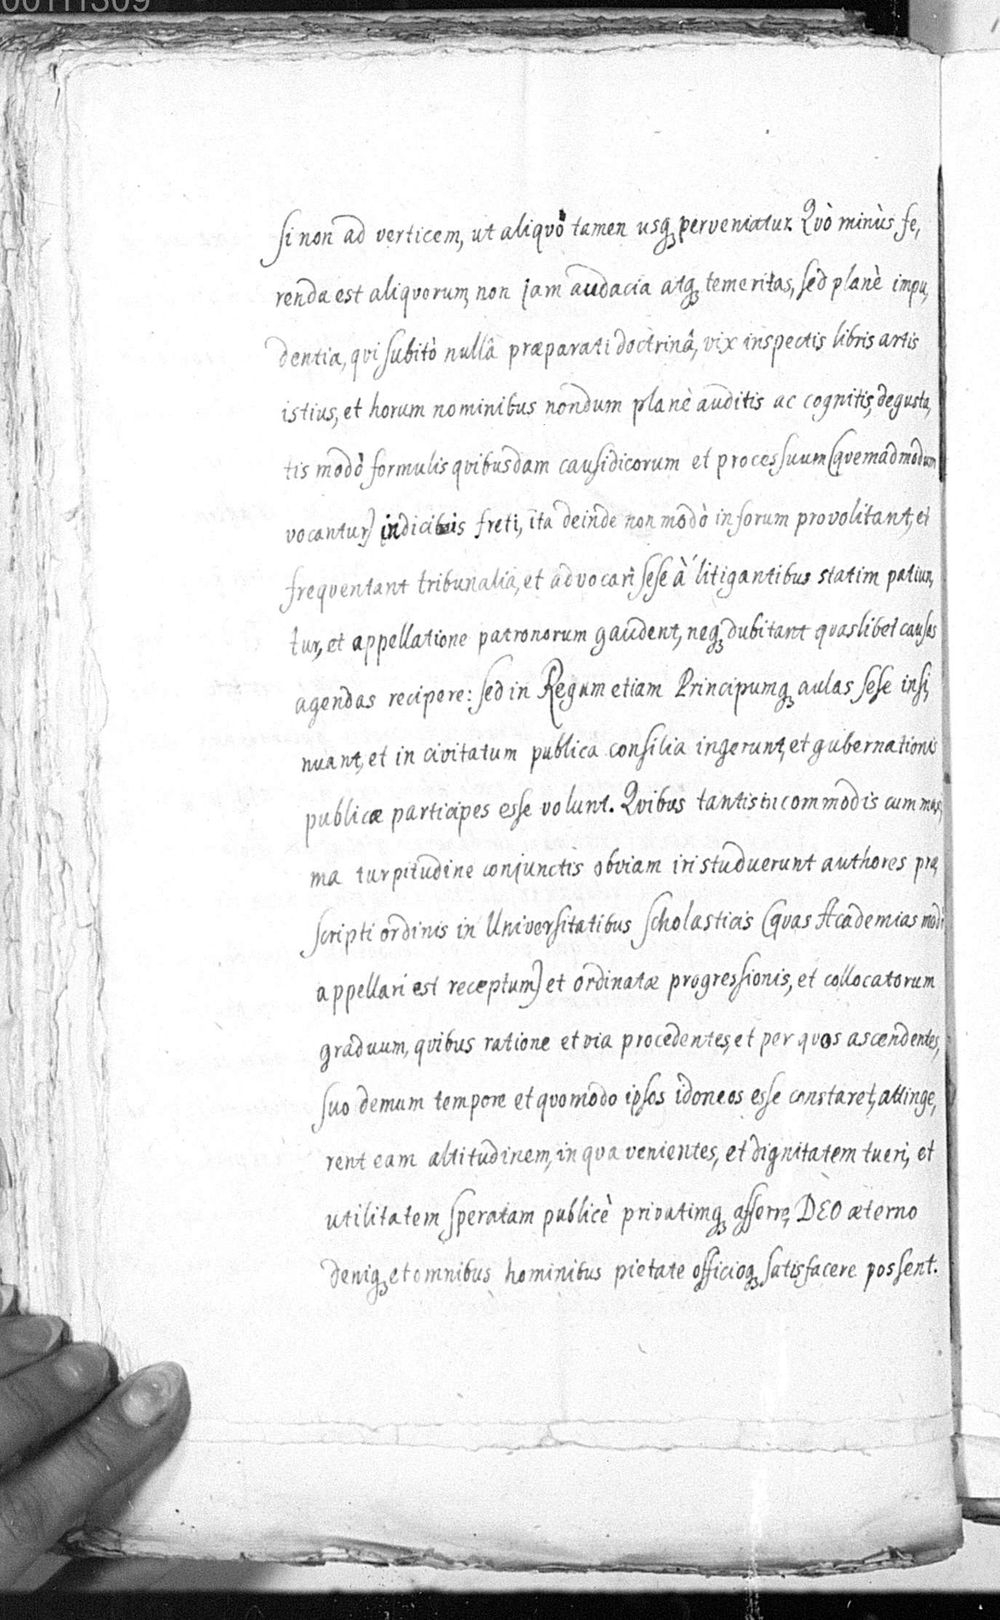 00111309
si non ad verticem, ut aliquò tamen usq; perveniatur. Qvò minùs fe,
renda est aliquorum, non jam audacia atq; temeritas, sed planè impu,
dentia, qvi subitò nullâ præparati doctrinâ, vix inspectis libris artis
istius, et horum nominibus nondum planè auditis ac cognitis, degusta,
tis modò formulis qvibusdam causidicorum et processuum (qvemadmodum
vocantur) indicibus freti, ita deinde non modò in forum provolitant, et
freqventant tribunalia, et advocari sese à litigantibus statim patiun,
tur, et appellatione patronorum gaudent, neq; dubitant quaslibet causas
agendas recipere: sed in Regum etiam Principumq; aulas sese insi,
nuant, et in civitatum publica consilia ingerunt, et gubernationis
publicæ participes esse volunt. Qvibus tantis incommodis cum max,
ma turpitudine conjunctis obviam iri studuerunt authores præ,
scripti ordinis in Universitatibus scholasticis (qvas Academias modò
appellari est receptum) et ordinatæ progressionis, et collocatorum
graduum, qvibus ratione et via procedentes, et per qvos ascendentes,
suo demum tempore et qvomodo ipsos idoneos esse constaret, attinge,
rent eam altitudinem, in qva venientes, et dignitatem tueri, et
utilitatem speratam publicè privatimq; afferre, DEO æterno
deniq; et omnibus hominibus pietate officioq; satisfacere possent.